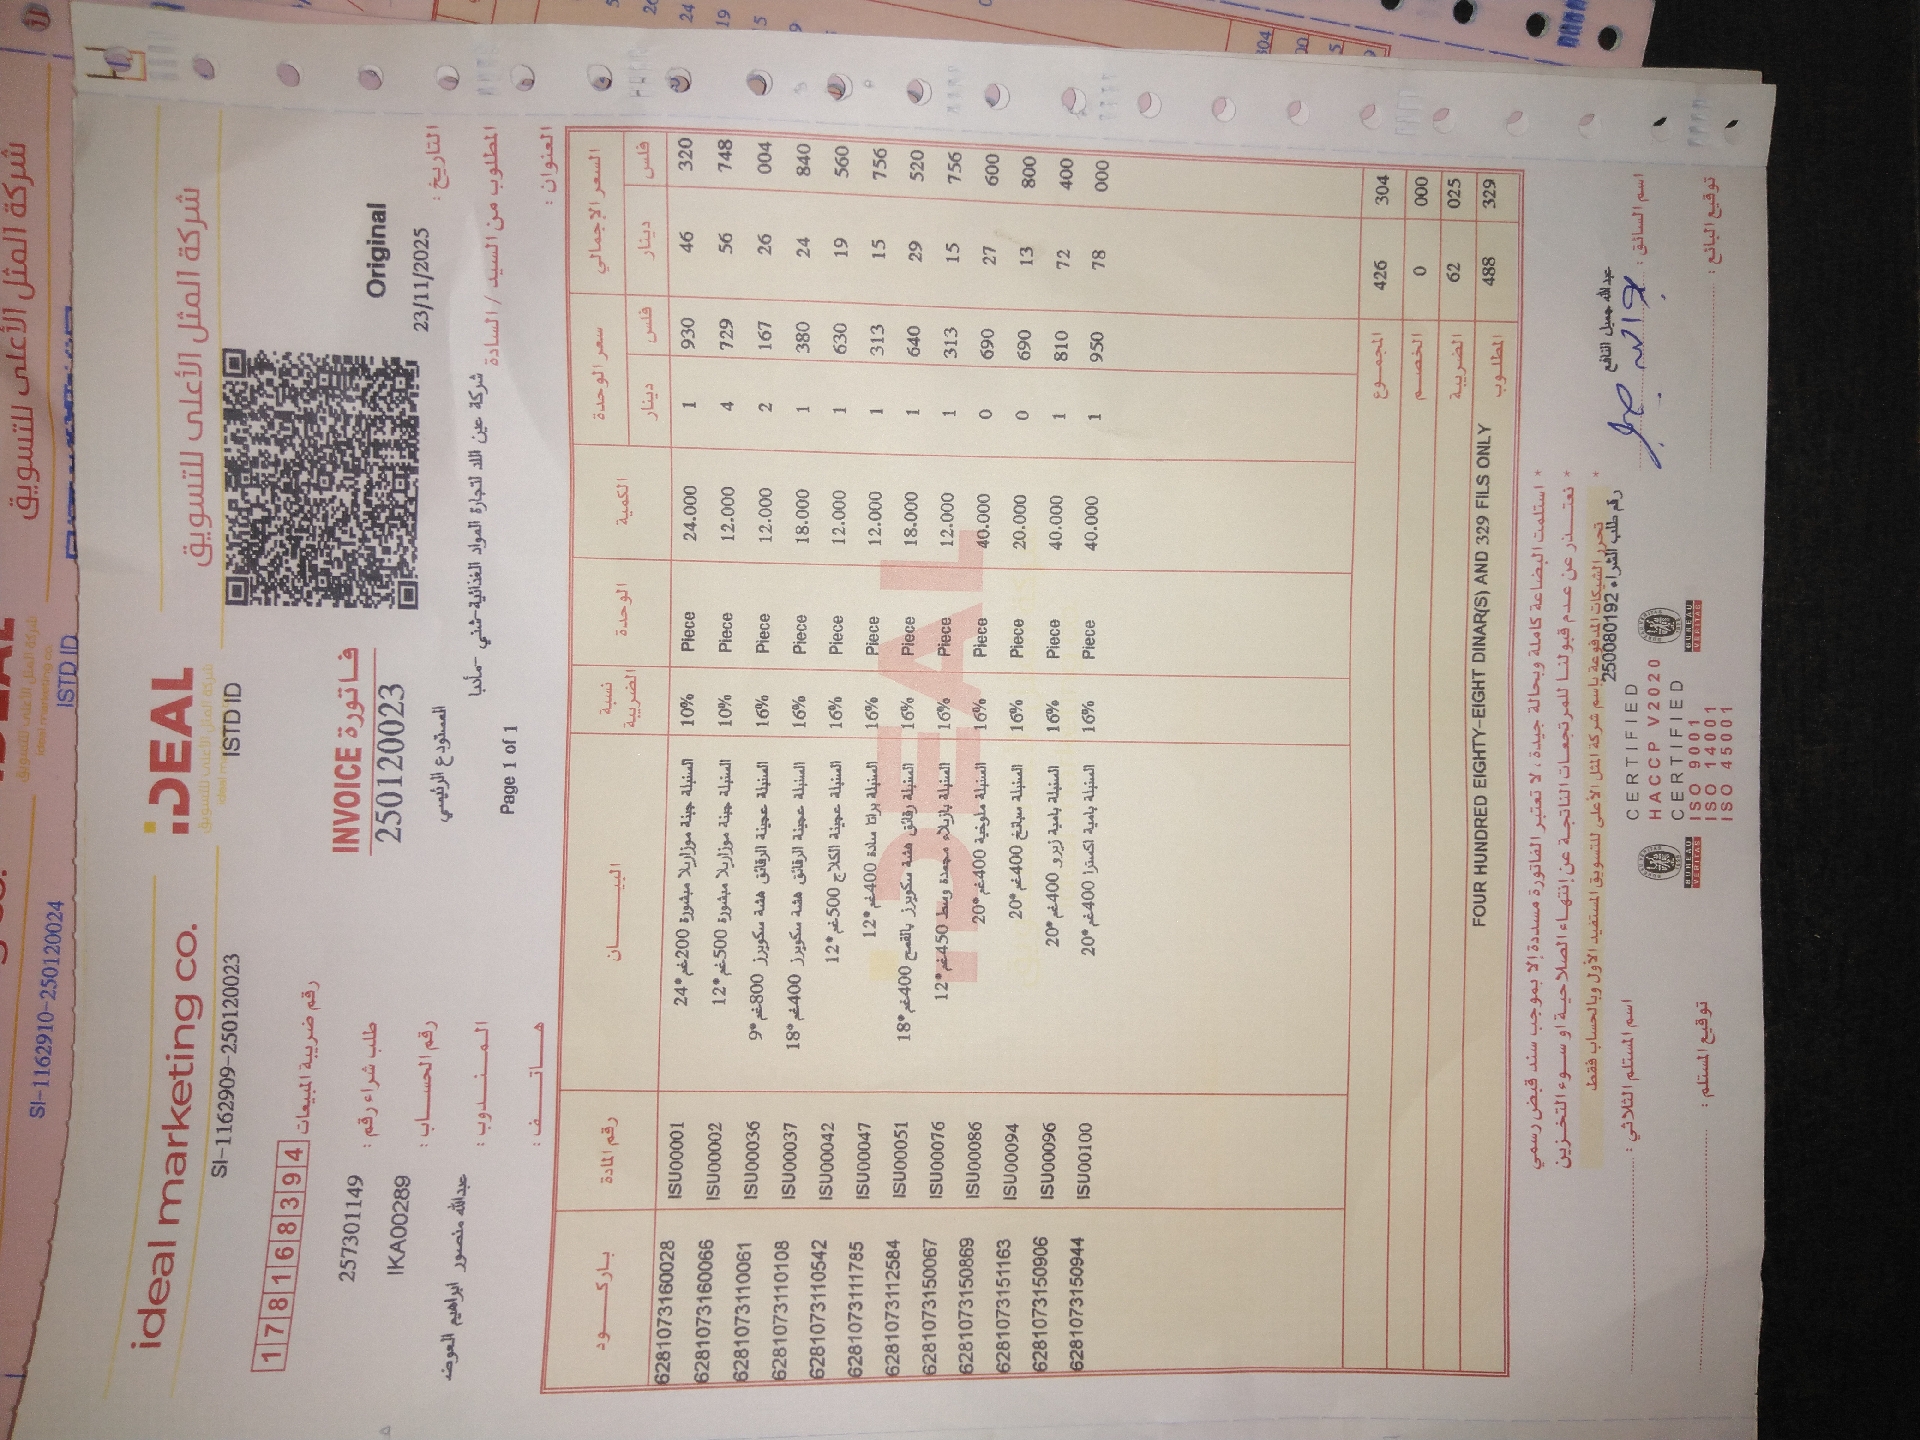 ideal marketing co.
iDEAL
شركة المثل الأعلى للتسويق
ideal marketing co.
شركة المثل الأعلى للتسويق
SI-1162909-250120023
ISTD ID
رقم ضريبة المبيعات 178168394
INVOICE فاتورة
250120023
Original
طلب شراء رقم : 257301149
رقم الحساب : IKA00289
المستودع الرئيسي
التاريخ : 23/11/2025
المندوب : عبدالله منصور ابراهيم العوضه
المطلوب من السيد / السادة
شركة عين اللد لتجارة المواد الغذائية-شني -مأدبا
هاتف :
Page 1 of 1
العنوان :
باركود رقم المادة البيان نسبة الضريبة الوحدة الكمية سعر الوحدة السعر الإجمالي
دينار فلس دينار فلس
6281073160028 ISU00001 السنبلة جبنة موزاريلا مبشورة 200غم*24 10% Piece 24.000 1 930 46 320
6281073160066 ISU00002 السنبلة جبنة موزاريلا مبشورة 500غم*12 10% Piece 12.000 4 729 56 748
6281073110061 ISU00036 السنبلة عجينة الرقائق هشة سكويرز 800غم*9 16% Piece 12.000 2 167 26 004
6281073110108 ISU00037 السنبلة عجينة الرقائق هشة سكويرز 400غم*18 16% Piece 18.000 1 380 24 840
6281073110542 ISU00042 السنبلة عجينة الكلاج 500غم*12 16% Piece 12.000 1 630 19 560
6281073111785 ISU00047 السنبلة براتا سادة 400غم*12 16% Piece 12.000 1 313 15 756
6281073112584 ISU00051 السنبلة رقائق هشة سكويرز بالقمح 400غم*18 16% Piece 18.000 1 640 29 520
6281073150067 ISU00076 السنبلة بازيلاء مجمدة وسط 450غم*12 16% Piece 12.000 1 313 15 756
6281073150869 ISU00086 السنبلة ملوخية 400غم*20 16% Piece 40.000 0 690 27 600
6281073151163 ISU00094 السنبلة سبانخ 400غم*20 16% Piece 20.000 0 690 13 800
6281073150906 ISU00096 السنبلة بامية زيرو 400غم*20 16% Piece 40.000 1 810 72 400
6281073150944 ISU00100 السنبلة بامية اكسترا 400غم*20 16% Piece 40.000 1 950 78 000
iDEAL
المجموع 426 304
الخصم 0 000
الضريبة 62 025
المطلوب 488 329
FOUR HUNDRED EIGHTY-EIGHT DINAR(S) AND 329 FILS ONLY
* استلمت البضاعة كاملة وبحالة جيدة ، لا تعتبر الفاتورة مسددة إلا بموجب سند قبض رسمي
* نعتذر عن عدم قبولنا للمرتجعات الناتجة عن إنتهاء الصلاحية او سوء التخزين
* تحرر الشيكات المدفوعة باسم شركة المثل الأعلى للتسويق المستفيد الأول وبالحساب فقط
رقم طلب الشراء 250080192
اسم المستلم الثلاثي :
اسم السائق :
توقيع المستلم :
توقيع البائع :
CERTIFIED
HACCP V2020
CERTIFIED
ISO 9001
ISO 14001
ISO 45001
BUREAU VERITAS
BUREAU VERITAS
SI-1162910-250120024
ISTD ID
شركة المثل الأعلى للتسويق
ideal marketing co.
شركة المثل الأعلى للتسويق